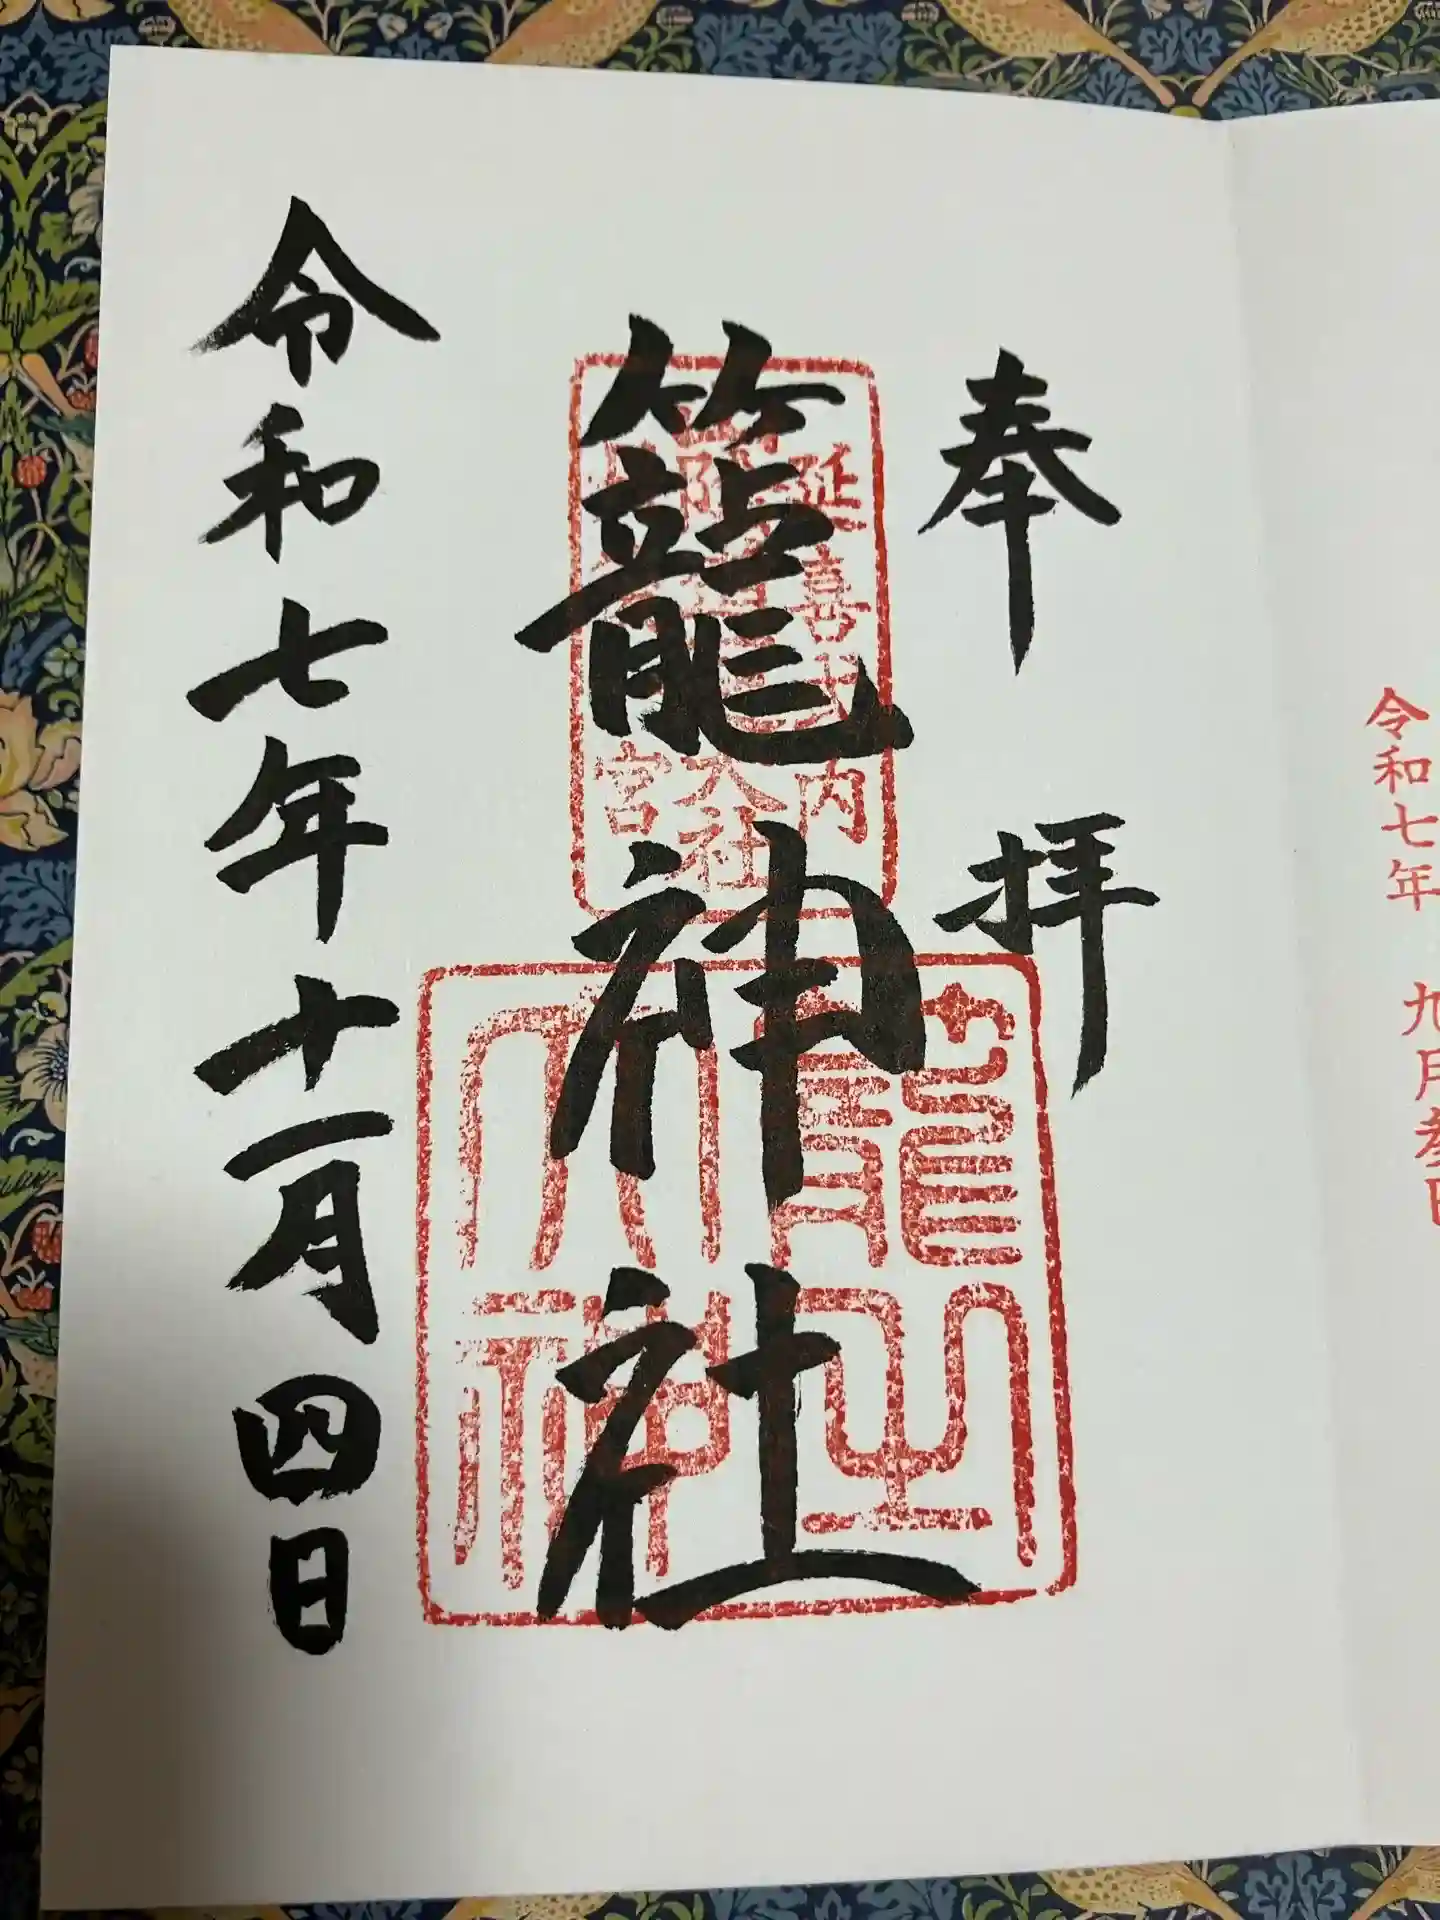 奉拝
籠神社
延喜式内
大社
宮
籠之大神
令和七年十一月四日
令和七年 九月